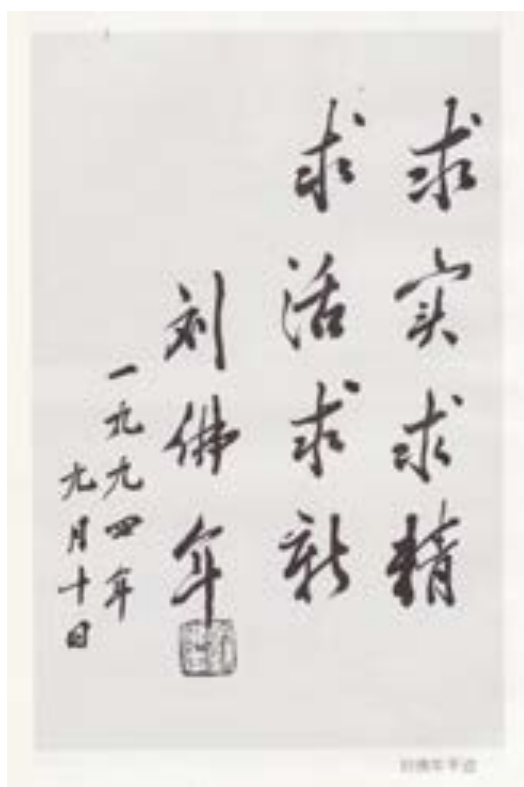 求实求精
求活求新
刘佛年
一九九四年
九月十日